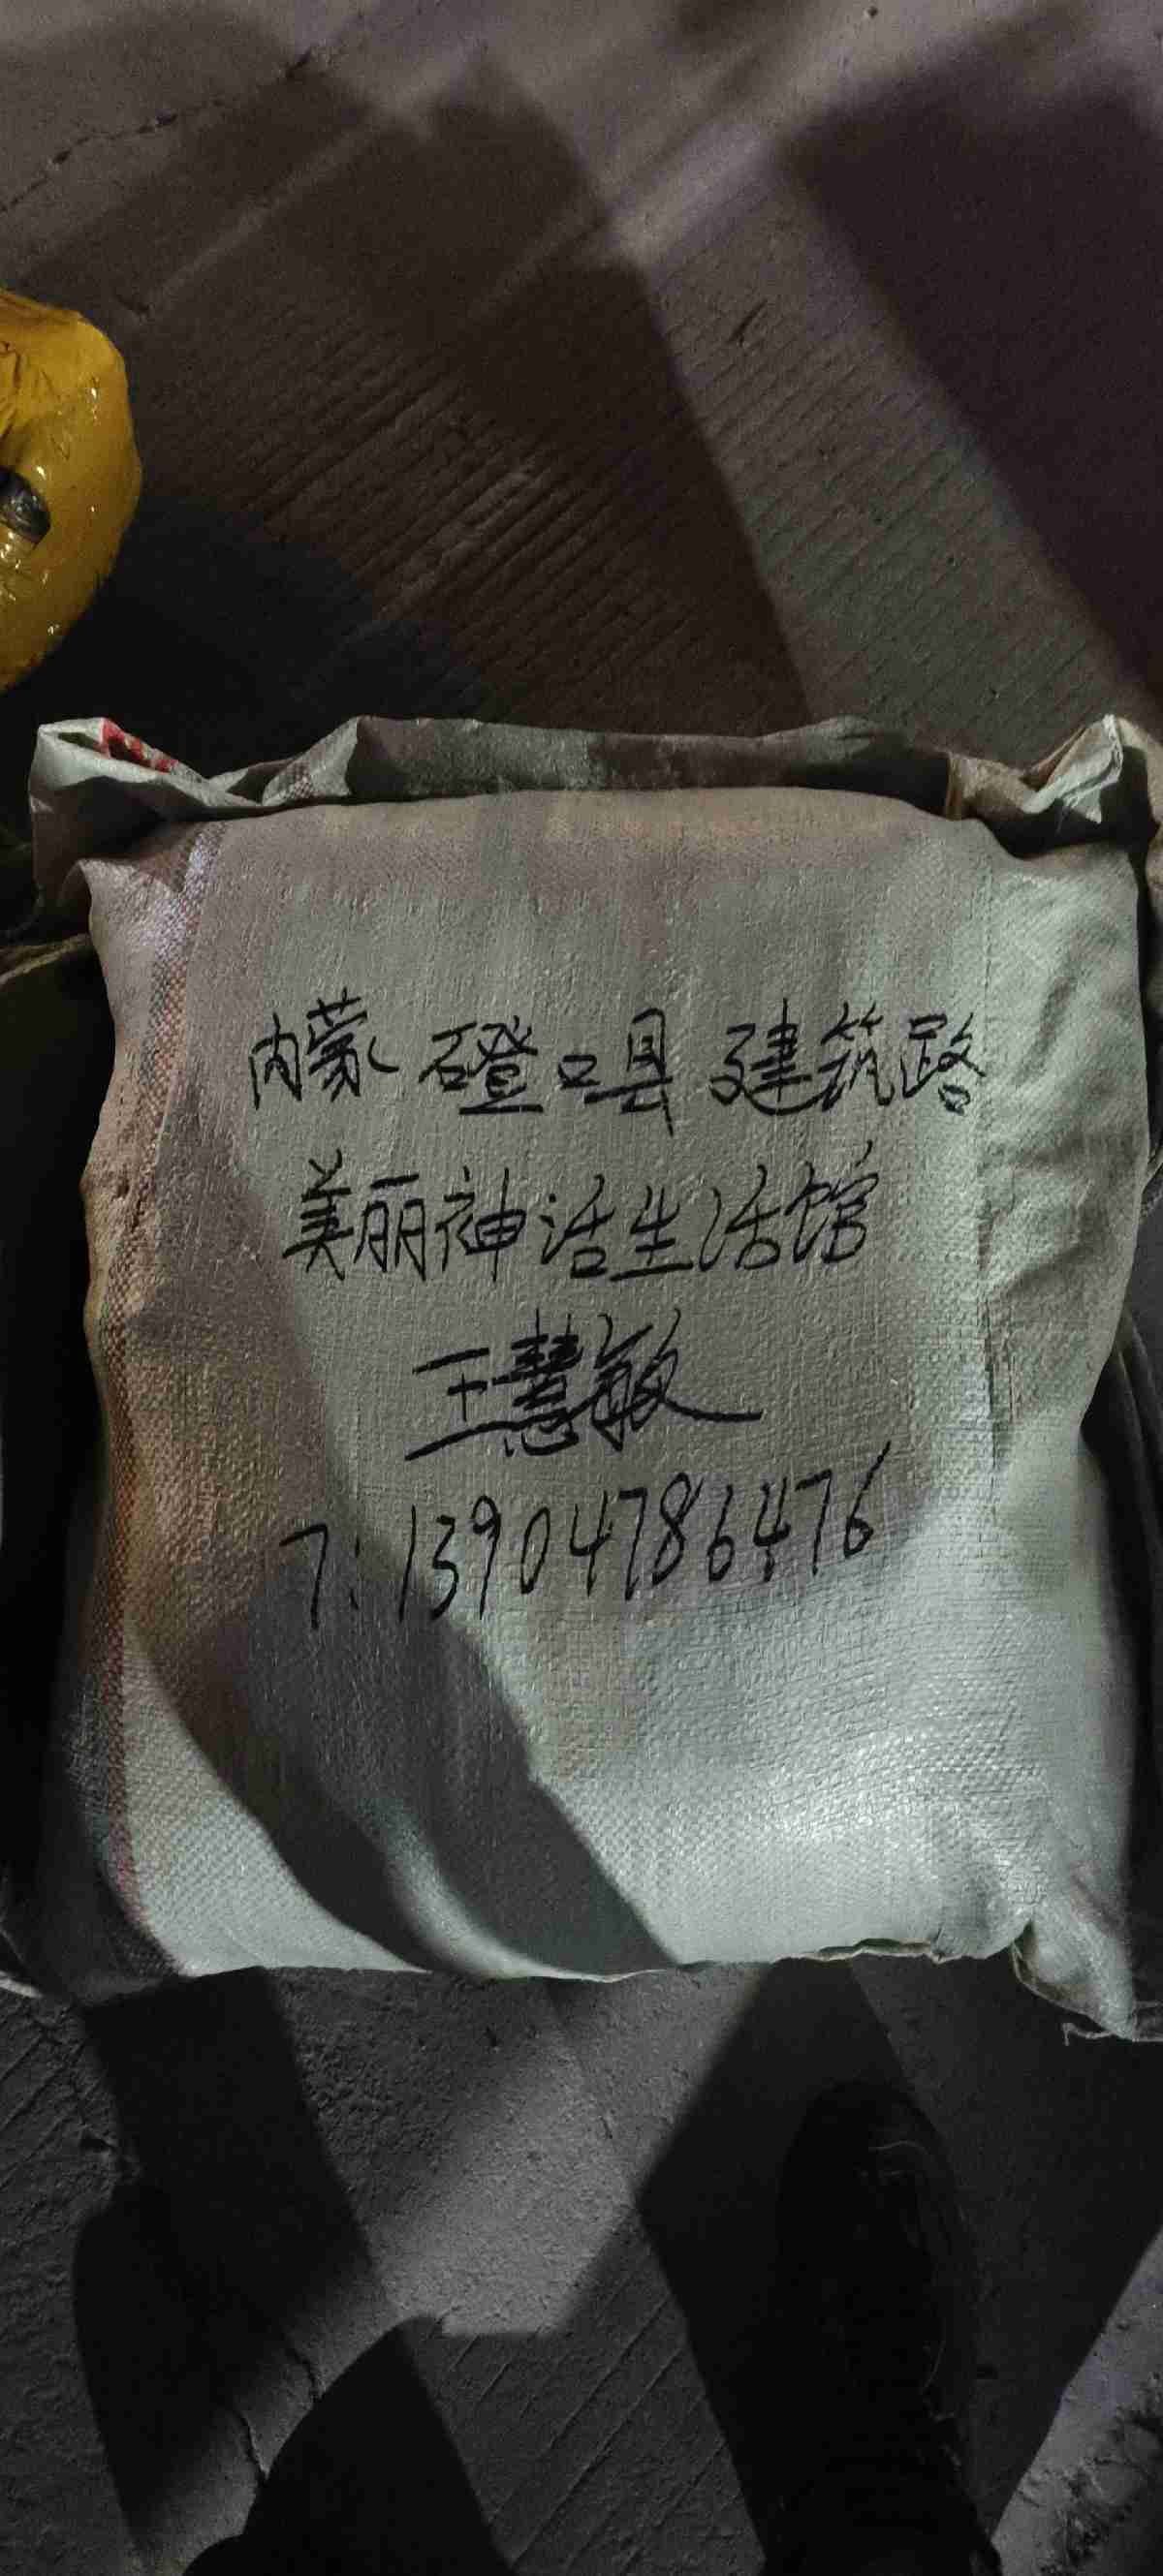 内蒙 磴口县 建筑路
美丽神话生活馆
王慧敏
T: 13904786476